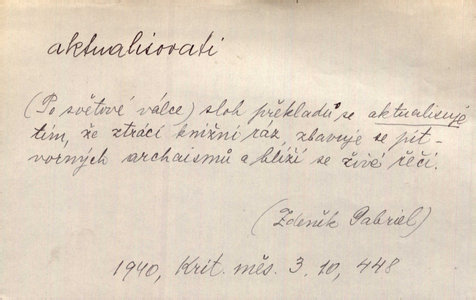 aktualisovati
(Po světové válce) sloh překladů se aktualisuje
tím, že ztrácí knižní ráz, zbavuje se pit-
vorných archaismů a blíží se živé řeči.
(Zdeněk Pabriel)
1940, Krit. měs. 3. 10, 448